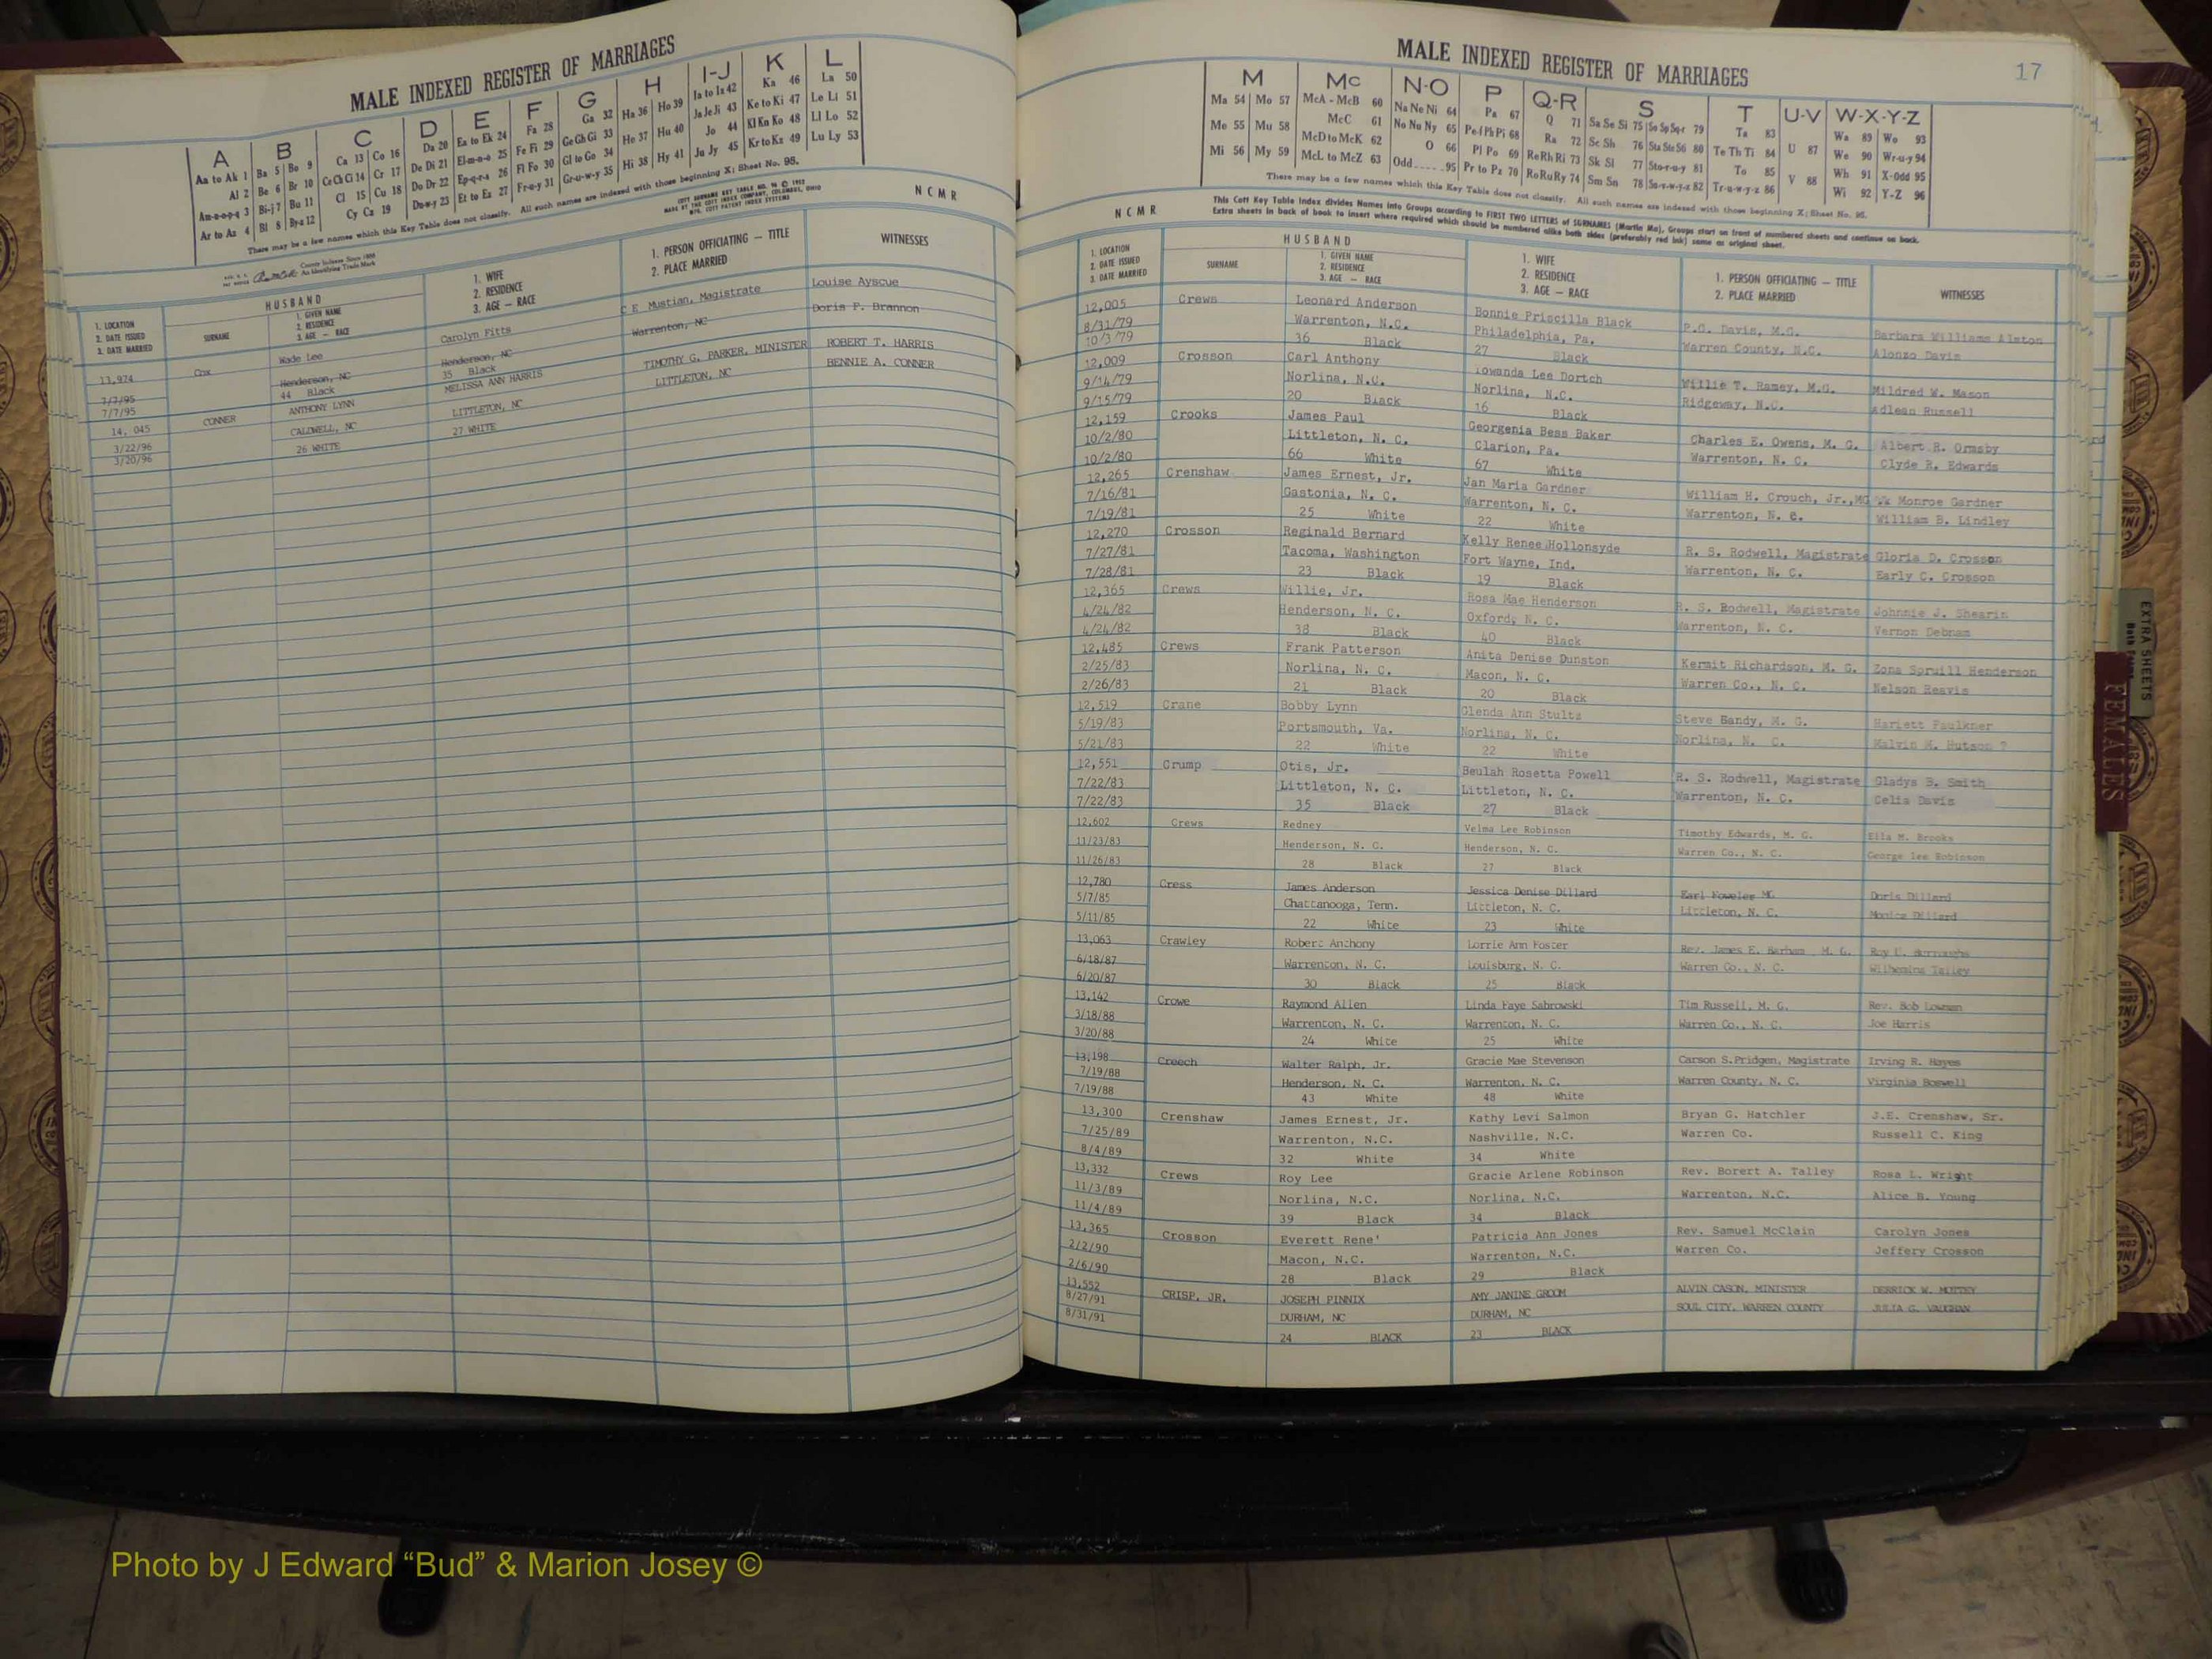 MALE INDEXED REGISTER OF MARRIAGES
A B C D E F G H I-J K L
Aa to Ak 1 Ba 5 Bo 9 Ca 13 Co 16 Da 20 Ea to Ek 24 Fa 28 Ga 32 Ha 36 Ho 39 Ia to Iz 42 Ka 46 La 50
Al 2 Be 6 Br 10 Ce Ch Ci 14 Cr 17 De Di 21 El-m-n-o 25 Fe Fi 29 Ge Gh Gi 33 He 37 Hu 40 Ja Je Ji 43 Ke to Ki 47 Le Li 51
Am-n-o-p-q 3 Bi-j 7 Bu 11 Cl 15 Cu 18 Do Dr 22 Ep-q-r-s 26 Fl Fo 30 Gl to Go 34 Hi 38 Hy 41 Jo 44 Kl Kn Ko 48 Ll Lo 52
Ar to Az 4 Bl 8 By-z 12 Cy Cz 19 Du-w-y 23 Et to Ez 27 Fr-u-y 31 Gr-u-w-y 35 Ju Jy 45 Kr to Kz 49 Lu Ly 53
There may be a few names which this Key Table does not classify. All such names are indexed with those beginning X; Sheet No. 95.
N C M R
HUSBAND
1. LOCATION
2. DATE ISSUED
3. DATE MARRIED
SURNAME
1. GIVEN NAME
2. RESIDENCE
3. AGE — RACE
1. WIFE
2. RESIDENCE
3. AGE — RACE
1. PERSON OFFICIATING — TITLE
2. PLACE MARRIED
WITNESSES
13,974 Cox Wade Lee Carolyn Fitts C E Mustian, Magistrate Louise Ayscue
7/7/95 Henderson, NC Henderson, NC Warrenton, NC Doris F. Brannon
7/7/95 44 Black 35 Black
14, 045 CONNER ANTHONY LYNN MELISSA ANN HARRIS TIMOTHY G. PARKER, MINISTER ROBERT T. HARRIS
3/22/96 CALDWELL, NC LITTLETON, NC LITTLETON, NC BENNIE A. CONNER
3/20/96 26 WHITE 27 WHITE
MALE INDEXED REGISTER OF MARRIAGES
17
M Mc N-O P Q-R S T U-V W-X-Y-Z
Ma 54 Mo 57 McA - McB 60 Na Ne Ni 64 Pa 67 Q 71 Sa Se Si 75 So Sp Sq-r 79 Ta 83 Wa 89 Wo 93
Me 55 Mu 58 McC 61 No Nu Ny 65 Pe-f Ph Pi 68 Ra 72 Sc Sh 76 Sta Ste Sti 80 Te Th Ti 84 U 87 We 90 Wr-u-y 94
Mi 56 My 59 McD to McK 62 O 66 Pl Po 69 Re Rh Ri 73 Sk Sl 77 Sto-r-u-y 81 To 85 V 88 Wh 91 X-Odd 95
McL to McZ 63 Odd 95 Pr to Pz 70 Ro Ru Ry 74 Sm Sn 78 Su-v-w-y-z 82 Tr-u-w-y-z 86 Wi 92 Y-Z 96
There may be a few names which this Key Table does not classify. All such names are indexed with those beginning X; Sheet No. 95.
This Cott Key Table Index divides Names into Groups according to FIRST TWO LETTERS of SURNAMES (Martin Ma), Groups start on front of numbered sheets and continue on back.
Extra sheets in back of book to insert where required which should be numbered alike both sides (preferably red ink) same as original sheet.
N C M R
HUSBAND
1. LOCATION
2. DATE ISSUED
3. DATE MARRIED
SURNAME
1. GIVEN NAME
2. RESIDENCE
3. AGE — RACE
1. WIFE
2. RESIDENCE
3. AGE — RACE
1. PERSON OFFICIATING — TITLE
2. PLACE MARRIED
WITNESSES
12,005 Crews Leonard Anderson Bonnie Priscilla Black P.G. Davis, M.G. Barbara Williams Alston
8/31/79 Warrenton, N.C. Philadelphia, Pa. Warren County, N.C. Alonzo Davis
10/3/79 36 Black 27 Black
12,009 Crosson Carl Anthony Towanda Lee Dortch Willie T. Ramey, M.G. Mildred W. Mason
9/14/79 Norlina, N.C. Norlina, N.C. Ridgeway, N.C. Adlean Russell
9/15/79 20 Black 16 Black
12,159 Crooks James Paul Georgenia Bess Baker Charles E. Owens, M. G. Albert R. Ormsby
10/2/80 Littleton, N. C. Clarion, Pa. Warrenton, N. C. Clyde R. Edwards
10/2/80 66 White 67 White
12,265 Crenshaw James Ernest, Jr. Jan Maria Gardner William H. Crouch, Jr.,MG Monroe Gardner
7/16/81 Gastonia, N. C. Warrenton, N. C. Warrenton, N. C. William B. Lindley
7/19/81 25 White 22 White
12,270 Crosson Reginald Bernard Kelly Renee Hollonsyde R. S. Rodwell, Magistrate Gloria D. Crosson
7/27/81 Tacoma, Washington Fort Wayne, Ind. Warrenton, N. C. Early C. Crosson
7/28/81 23 Black 19 Black
12,365 Crews Willie, Jr. Rosa Mae Henderson R. S. Rodwell, Magistrate Johnnie J. Shearin
4/24/82 Henderson, N. C. Oxford, N. C. Warrenton, N. C. Vernon Debnam
4/24/82 38 Black 40 Black
12,485 Crews Frank Patterson Anita Denise Dunston Kermit Richardson, M. G. Zona Spruill Henderson
2/25/83 Norlina, N. C. Macon, N. C. Warren Co., N. C. Nelson Reavis
2/26/83 21 Black 20 Black
12,519 Crane Bobby Lynn Glenda Ann Stultz Steve Gandy, M. G. Hariett Faulkner
5/19/83 Portsmouth, Va. Norlina, N. C. Norlina, N. C. Malvin M. Hutson ?
5/21/83 22 White 22 White
12,551 Crump Otis, Jr. Beulah Rosetta Powell R. S. Rodwell, Magistrate Gladys B. Smith
7/22/83 Littleton, N. C. Littleton, N. C. Warrenton, N. C. Celia Davis
7/22/83 35 Black 27 Black
12,602 Crews Redney Velma Lee Robinson Timothy Edwards, M. G. Ella M. Brooks
11/23/83 Henderson, N. C. Henderson, N. C. Warren Co., N. C. George Lee Robinson
11/26/83 28 Black 27 Black
12,780 Cress James Anderson Jessica Denise Dillard Earl Foweler MG. Doris Dillard
5/7/85 Chattanooga, Tenn. Littleton, N. C. Littleton, N. C. Monica Dillard
5/11/85 22 White 23 White
13,063 Crawley Robert Anthony Lorrie Ann Foster Rev. James E. Barham M. G. Roy U. Burroughs
6/18/87 Warrenton, N. C. Louisburg, N. C. Warren Co., N. C. Wilhemina Talley
6/20/87 30 Black 25 Black
13,142 Crowe Raymond Allen Linda Faye Sabrowski Tim Russell, M. G. Rev. Bob Lowman
3/18/88 Warrenton, N. C. Warrenton, N. C. Warren Co., N. C. Joe Harris
3/20/88 24 White 25 White
13,198 Creech Walter Ralph, Jr. Gracie Mae Stevenson Carson S.Pridgen, Magistrate Irving R. Hayes
7/19/88 Henderson, N. C. Warrenton, N. C. Warren County, N. C. Virginia Boswell
7/19/88 43 White 48 White
13,300 Crenshaw James Ernest, Jr. Kathy Levi Salmon Bryan G. Hatchler J.E. Crenshaw, Sr.
7/25/89 Warrenton, N.C. Nashville, N.C. Warren Co. Russell C. King
8/4/89 32 White 34 White
13,332 Crews Roy Lee Gracie Arlene Robinson Rev. Borert A. Talley Rosa L. Wright
11/3/89 Norlina, N.C. Norlina, N.C. Warrenton, N.C. Alice B. Young
11/4/89 39 Black 34 Black
13,365 Crosson Everett Rene' Patricia Ann Jones Rev. Samuel McClain Carolyn Jones
2/2/90 Macon, N.C. Warrenton, N.C. Warren Co. Jeffery Crosson
2/6/90 28 Black 29 Black
13,552 CRISP, JR. JOSEPH PINNIX AMY JANINE GROOM ALVIN CASON, MINISTER DERRICK W. MOTTEY
8/27/91 DURHAM, NC DURHAM, NC SOUL CITY, WARREN COUNTY JULIA G. VAUGHAN
8/31/91 24 BLACK 23 BLACK
EXTRA SHEETS
FEMALES
Photo by J Edward “Bud” & Marion Josey ©